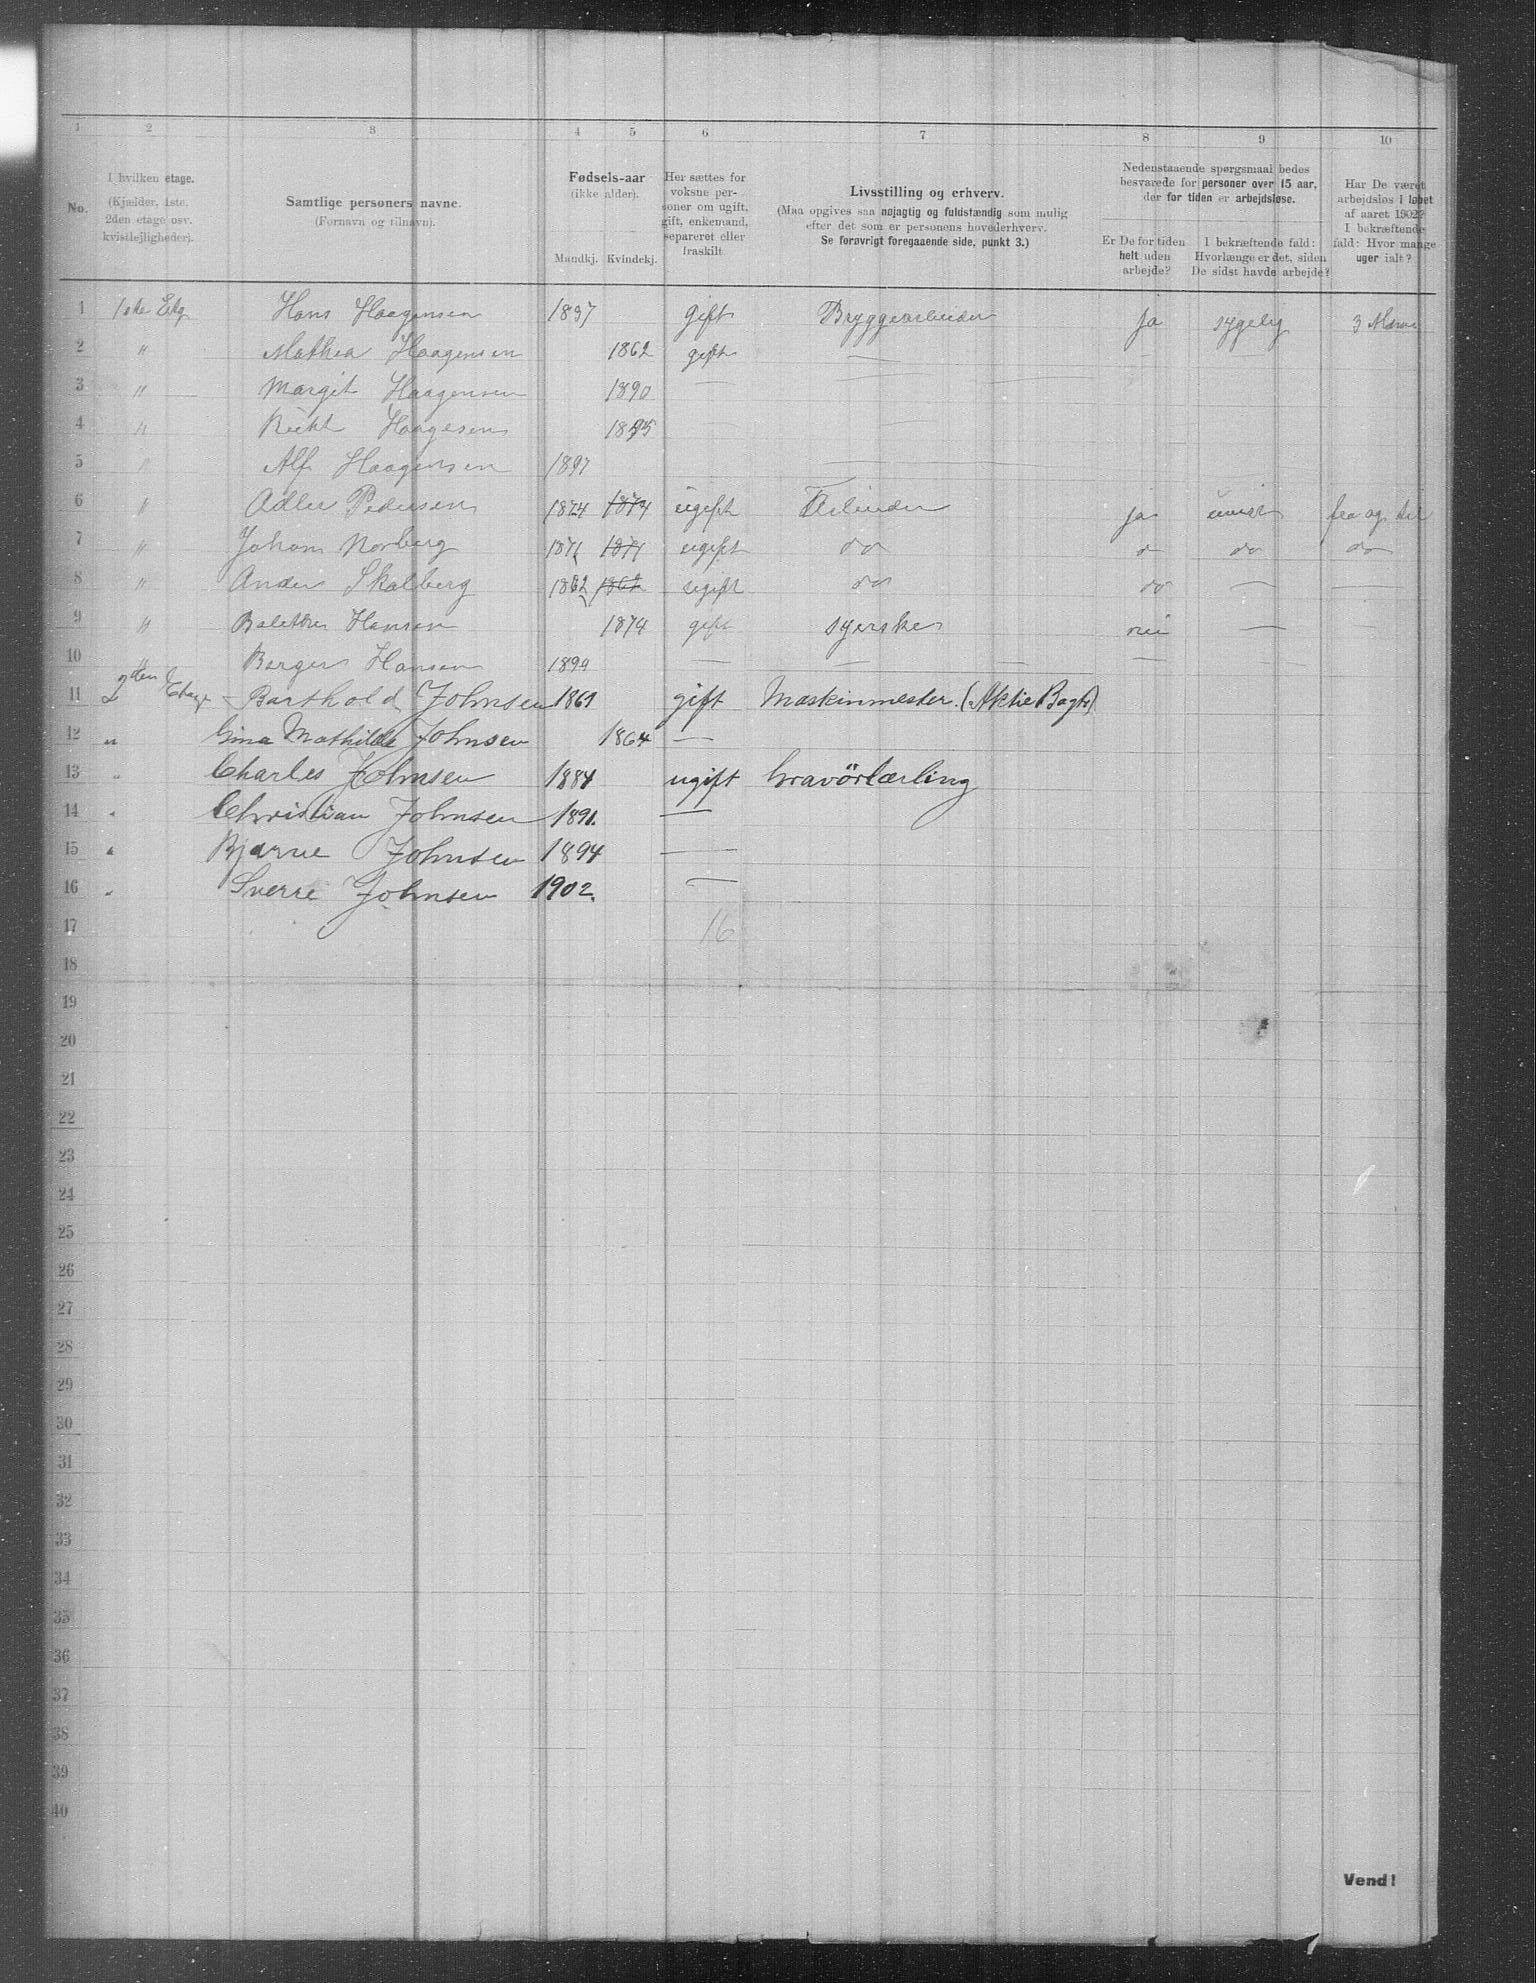 1 2 3 4 5 6 7 8 9 10
No.
I hvilken etage.
(Kjælder, 1ste,
2den etage osv.
kvistlejligheder).
Samtlige personers navne.
(Fornavn og tilnavn).
Fødsels-aar
(ikke alder).
Mandkj. Kvindekj.
Her sættes for
voksne per-
soner om ugift,
gift, enkemand,
separeret eller
fraskilt
Livsstilling og erhverv.
(Maa opgives saa nøjagtig og fuldstændig som mulig
efter det som er personens hovederhverv.
Se forøvrigt foregaaende side, punkt 3.)
Nedenstaaende spørgsmaal bedes
besvarede for personer over 15 aar,
der for tiden er arbejdsløse.
Er De for tiden
helt uden
arbejde?
I bekræftende fald:
Hvorlænge er det, siden
De sidst havde arbejde?
Har De været
arbejdsløs i løbet
af aaret 1902?
I bekræftende
fald: Hvor mange
uger ialt?
1 1ste Etg Hans Haagensen 1897 gift Bryggearbeider ja sygelig 3
2 " Mathea Haagensen 1862 gift —
3 " Margit Haagensen 1890 — —
4 " Haagesen 1895
5 " Alf Haagensen 1897
6 " Adler Pedersen 1874 1874 ugift Arbeider ja fra og til
7 " Johan Norberg 1871 1871 ugift do do do do
8 " Anders Skalberg 1862 1862 ugift do do — —
9 " Hansen 1874 gift syerske nei — —
10 " Berger Hansen 1899 — — — —
11 2den Etage Barthold Johnsen 1861 gift Maskinmester (Aktie Bagt)
12 " Gina Mathilde Johnsen 1864 —
13 " Charles Johnsen 1884 ugift Gravörlærling
14 " Christian Johnsen 1891. —
15 " Bjarne Johnsen 1894 —
16 " Sverre Johnsen 1902. —
17 16
18
19
20
21
22
23
24
25
26
27
28
29
30
31
32
33
34
35
36
37
38
39
40
Vend!